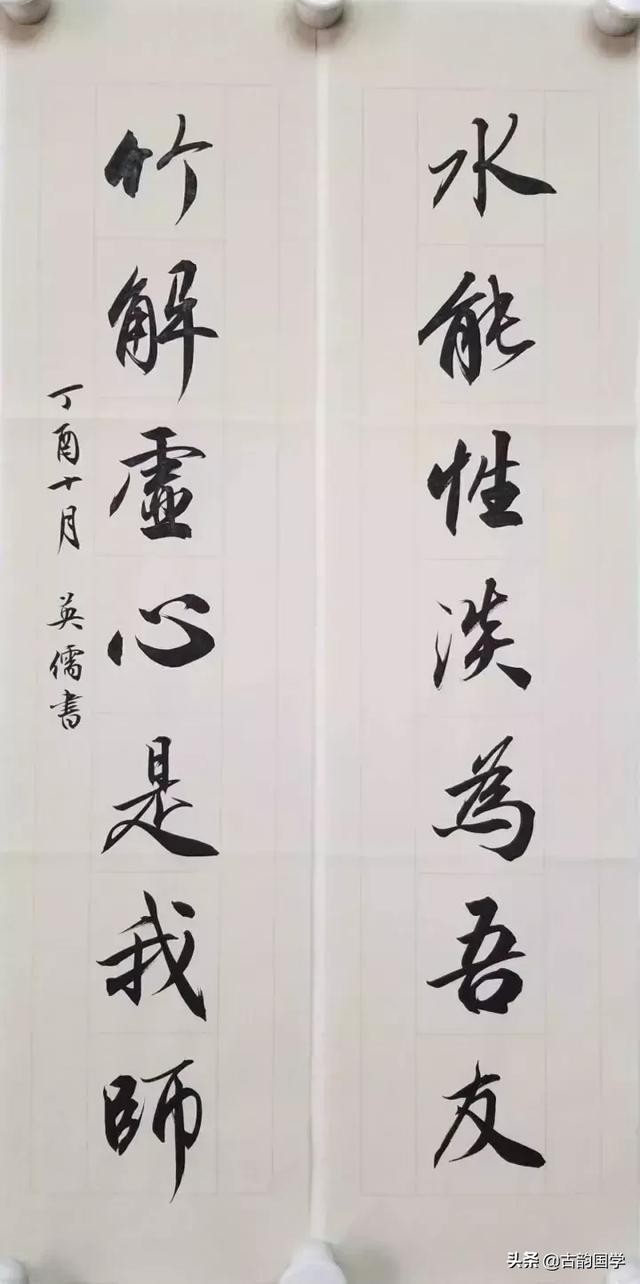 水能性淡為吾友
竹解虛心是我師
丁酉十月 英儒書
头条 @古韵国学